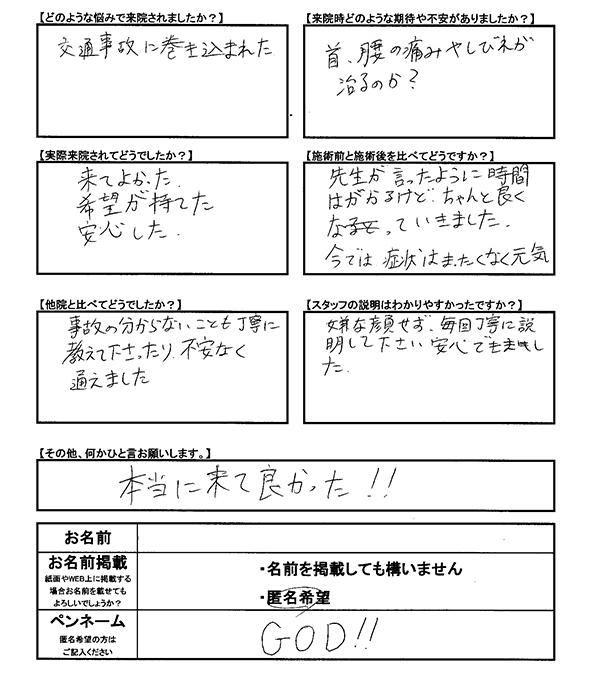 【どのような悩みで来院されましたか？】
交通事故に巻き込まれた
【来院時どのような期待や不安がありましたか？】
首、腰の痛みやしびれが
治るのか？
【実際来院されてどうでしたか？】
来てよかった.
希望が持てた
安心した.
【施術前と施術後を比べてどうですか？】
先生が言ったように時間
はがかるけど、ちゃんと良く
なっていきました.
今では症状はまったくなく元気
【他院と比べてどうでしたか？】
事故の分からないことも丁寧に
教えて下さったり、不安なく
通えました
【スタッフの説明はわかりやすかったですか？】
嫌な顔せず、毎回丁寧に説
明して下さい安心できまし
た.
【その他、何かひと言お願いします。】
本当に来て良かった!!
お名前
お名前掲載
紙面やWEB上に掲載する
場合お名前を載せても
よろしいでしょうか？
・名前を掲載しても構いません
・匿名希望
ペンネーム
匿名希望の方は
ご記入ください
GOD!!